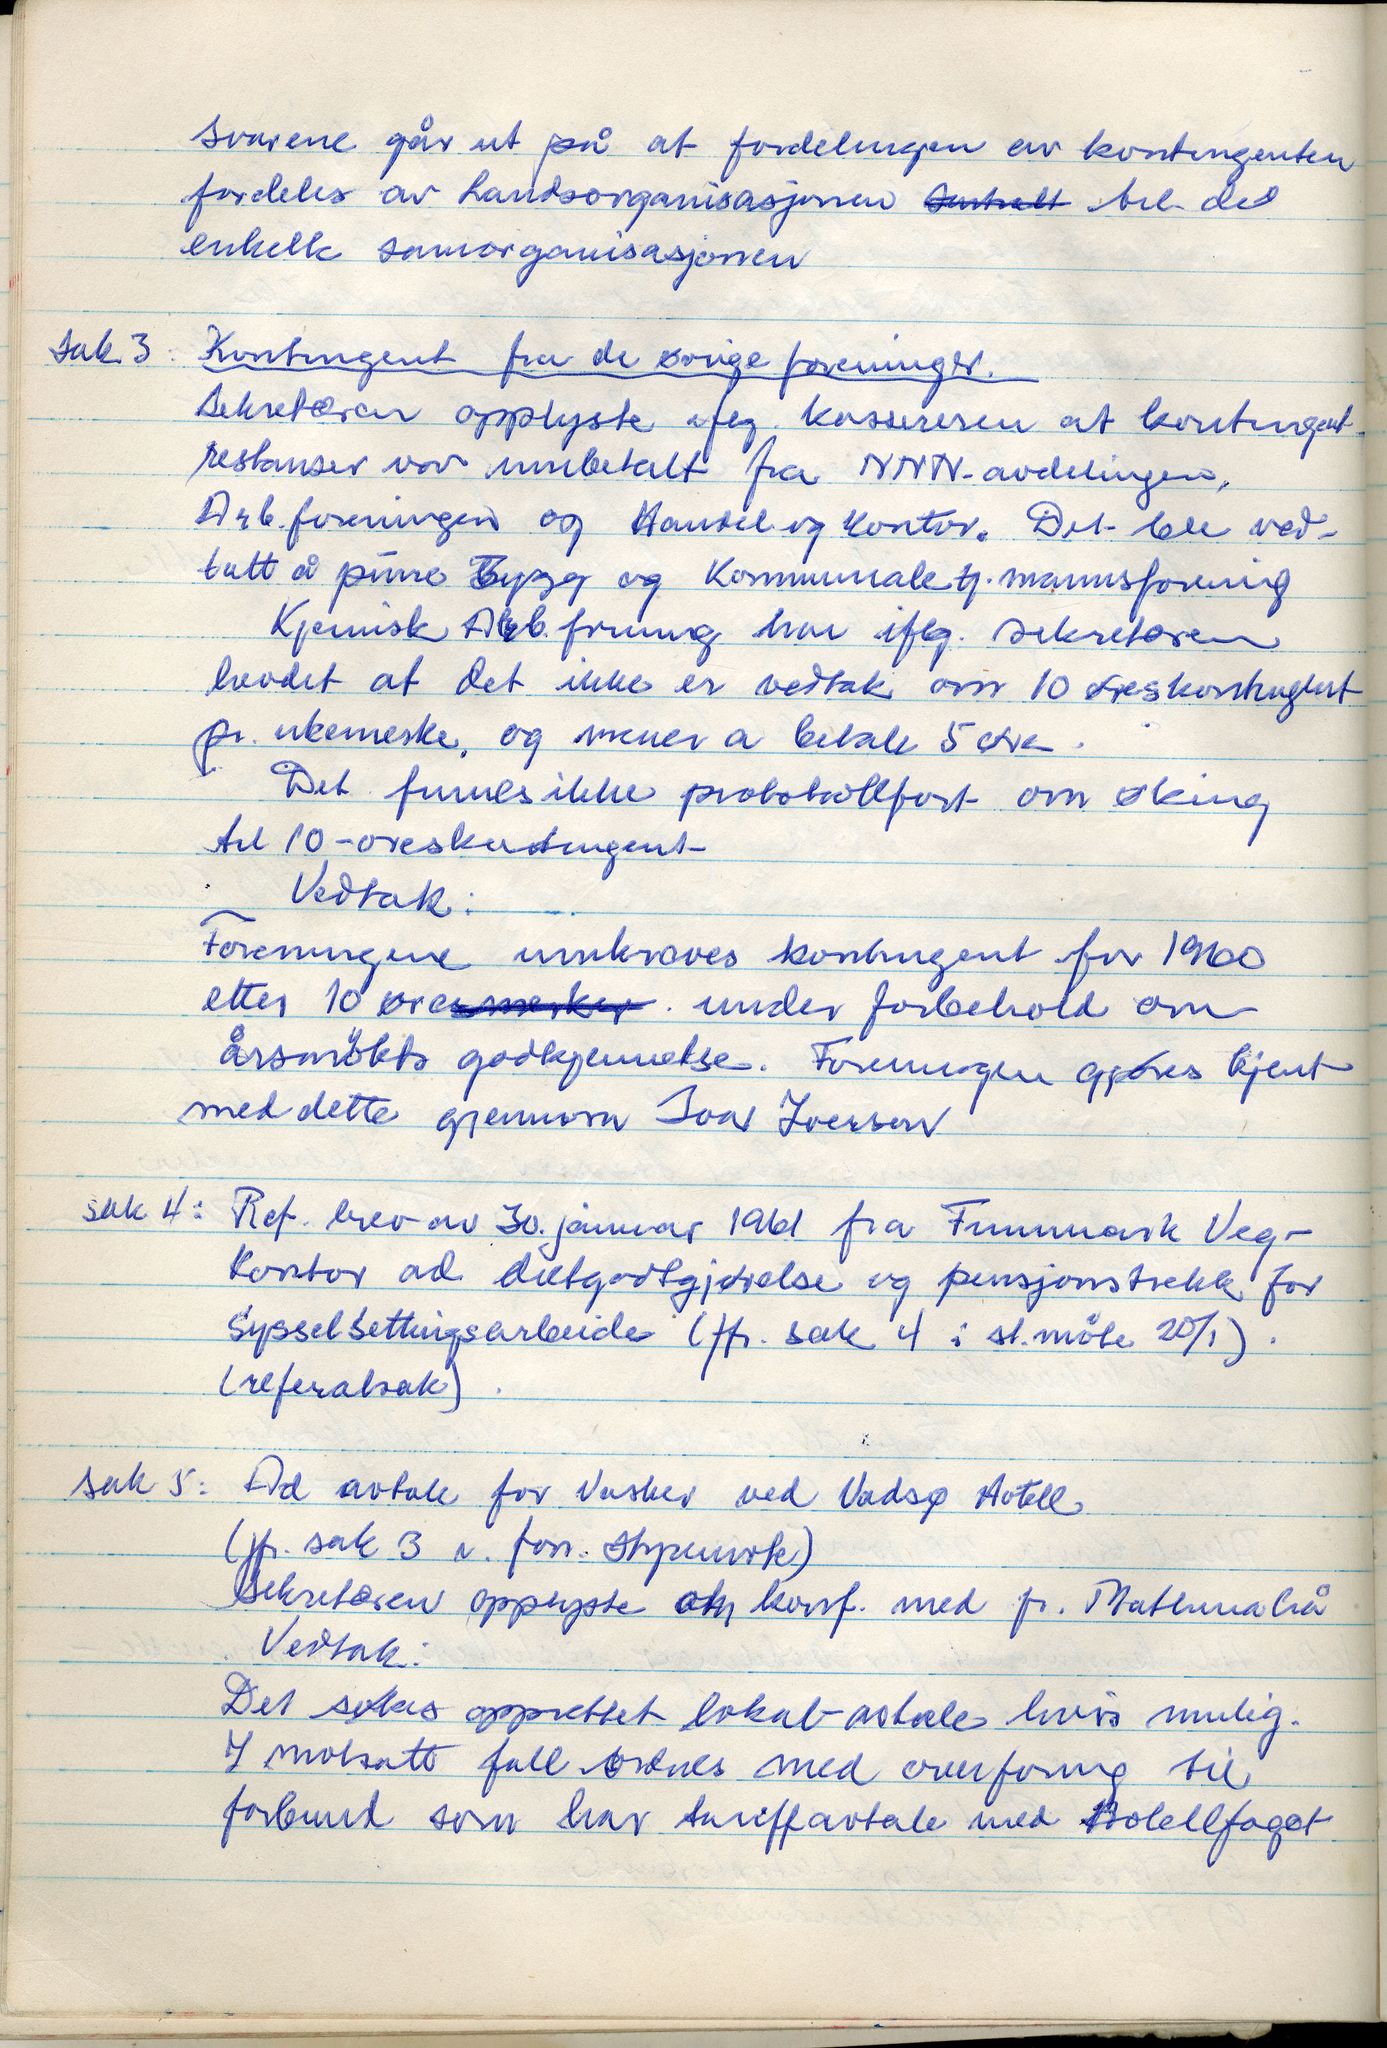 svarene går ut på at fordelingen av kontingenten
fordeles av Landsorganisasjonen sentralt til de
enkelte samorganisasjonen
sak 3: Kontingent fra de øvrige foreninger.
Sekretæren opplyste iflg. kassereren at kontingent-
restanser var innbetalt fra NNN-avdelingen,
Arb.foreningen og Handel og Kontor. Det ble ved-
tatt å purre Bygg og Kommunale tj.mannsforening
Kjemisk Arb.forening har iflg. sekretæren
hevdet at det ikke er vedtak om 10 øreskontingent
pr. ukemerke, og mener å betale 5 øre.
Det finnes ikke protokollført om øking
til 10-øreskontingent
Vedtak:
Foreningene innkreves kontingent for 1960
etter 10 øresmerker under forbehold om
årsmøtets godkjennelse. Foreningen gjøres kjent
med dette gjennom Ivar Iversen
sak 4: Ref. brev av 30. januar 1961 fra Finnmark Veg-
kontor ad diettgodtgjørelse og pensjonstrekk for
sysselsettingsarbeide (jfr. sak 4 i st.møte 20/1).
(referatsak).
sak 5: Ad avtale for Vasker ved Vadsø Hotell
(jfr. sak 3 i forr. styremøte)
Sekretæren opplyste om konf. med fr.
Vedtak:
Det søkes opprettet lokal-avtale hvis mulig.
I motsatt fall ordnes med overføring til
forbund som har tariffavtale med Hotellfaget